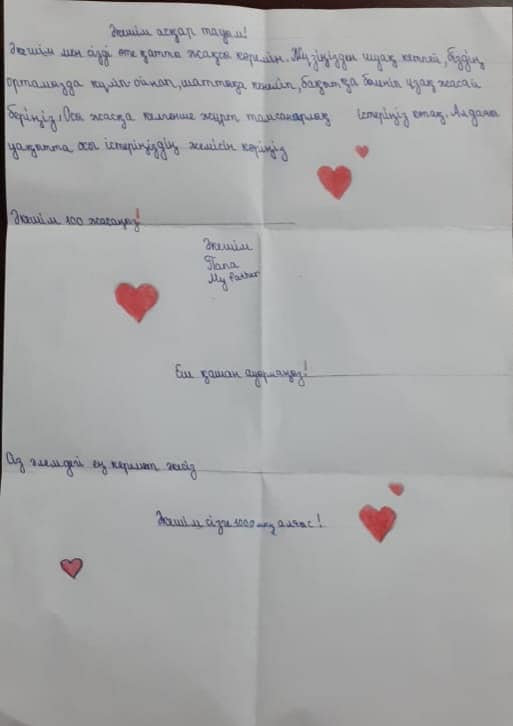 Әкешім асқар тауым!
Әкешім мен сізді өте қатты жақсы көремін. Жүзіңізден шуақ кетпей, біздің
ортамызда күліп-ойнап, шаттыққа кенеліп, бақытқа бөленіп ұзақ жасай
беріңіз. Осы жасқа келгенше жұрт тамсанарлық істеріңіз көп. Алдағы
уақытта осы істеріңіздің жемісін көріңіз
Әкешім 100 жасаңыз!
Әкешім
Папа
My father
Еш қашан ауырмаңыз!
Сіз әлемдегі ең керемет жансыз
Әкешім сізге 1000 алғыс!